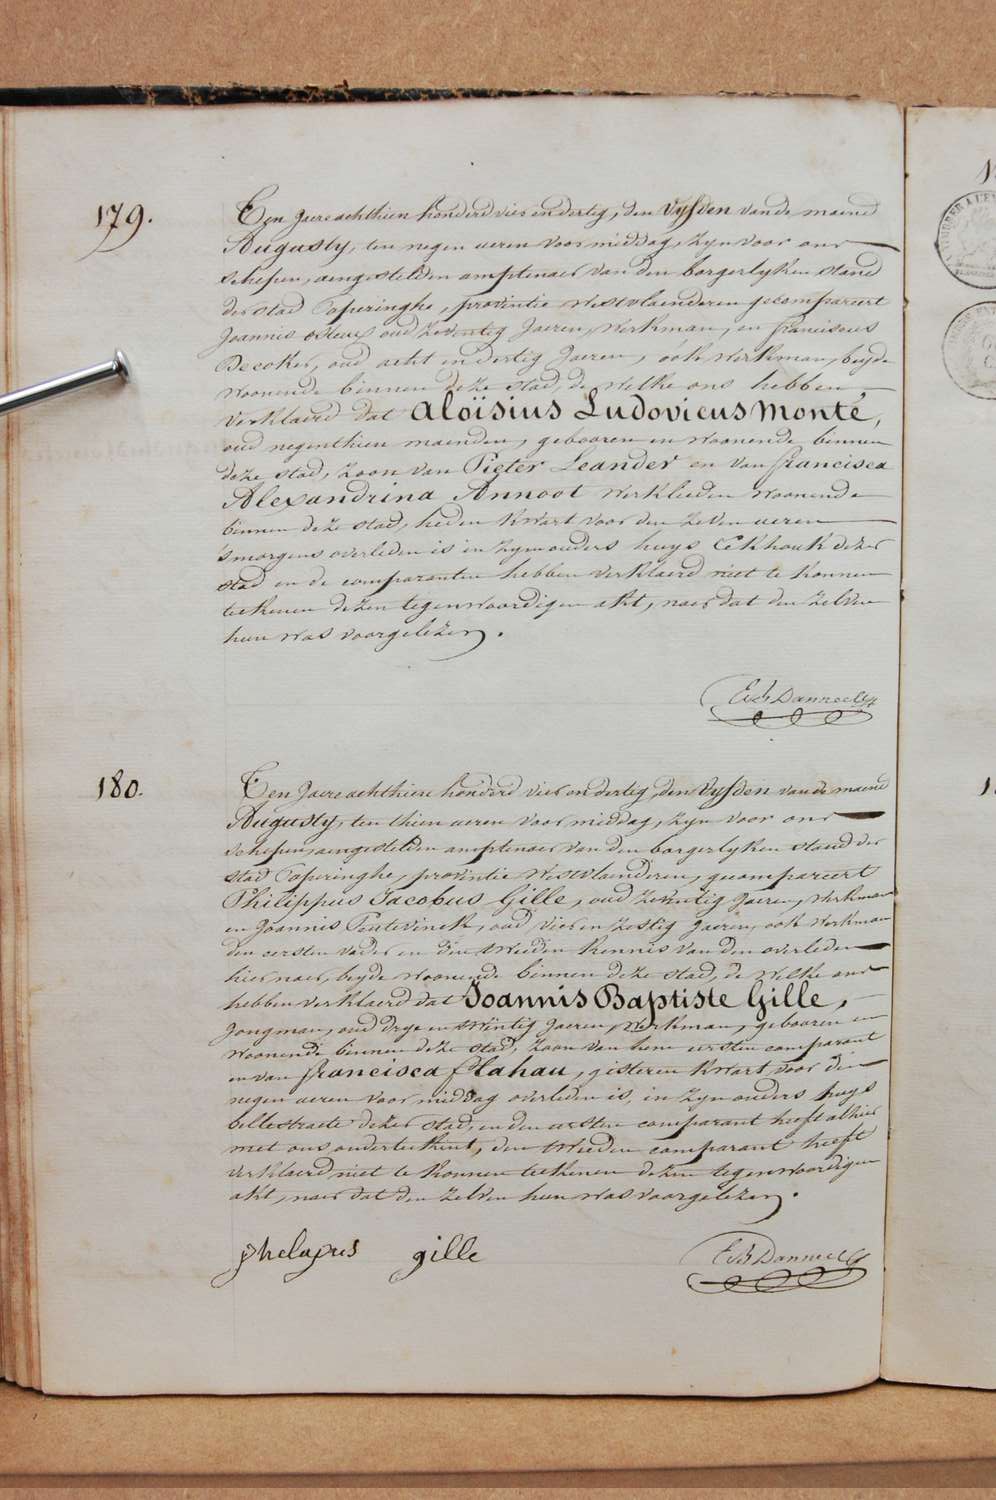 179.
Een jaere achthien honderd vier en dertig, den vyfden van de maend
Augusty, ten negen ueren voormiddag, zyn voor ons
schepen, aengestelden amptenaer van den borgerlyken stand
der stad Poperinghe, provintie Westvlaenderen gecompareert
Joannis oud zeventig Jaeren, werkman, en franciscus
Decoker, oud acht en dertig Jaeren, óók werkman, beyde
woonende binnen deze stad, de welke ons hebben
verklaerd dat Aloïsius Ludovicus Monté,
oud negenthien maenden, gebooren en woonende binnen
deze stad, zoon van Pieter Leander en van francisca
Alexandrina Annoot werklieden woonende
binnen deze stad, heden kwart voor den zeven ueren
'smorgens overleden is in zyn ouders huys Eekhoukdezer
stad en de comparanten hebben verklaerd niet te konnen
teekenen dezen tegenwoordigen akt, naer dat den zelven
hun was voorgelezen.
180.
Een Jaere achthien honderd vier en dertig, den vyfden van de maend
Augusty, ten thien ueren voormiddag, zyn voor ons
schepen, aengestelden amptenaer van den borgerlyken stand der
stad Poperinghe, provintie Westvlaenderen, gecompareert
Philippus Jacobus Gille, oud zeventig Jaeren, werkman
en Joannis Peutevinck, oud vier en zestig Jaeren, óók werkman
den eersten vader en den tweeden kennis van den overleden
hier naer, beyde woonende binnen deze stad, de welke ons
hebben verklaerd dat Joannis Baptiste Gille,
Jongman, oud drye en twintig Jaeren, werkman, gebooren en
woonende binnen deze stad, zoon van hem eersten comparant
en van francisca flahau, gisteren kwart voor den
negen ueren voor middag overleden is, in zyn ouders huys
bellestraete dezer stad, en den eersten comparant heeft alhier
met ons onderteekent, den tweeden comparant heeft
verklaerd niet te konnen teekenen dezen tegenwoordigen
akt, naer dat den zelven hun was voorgelezen.
phelapus gille